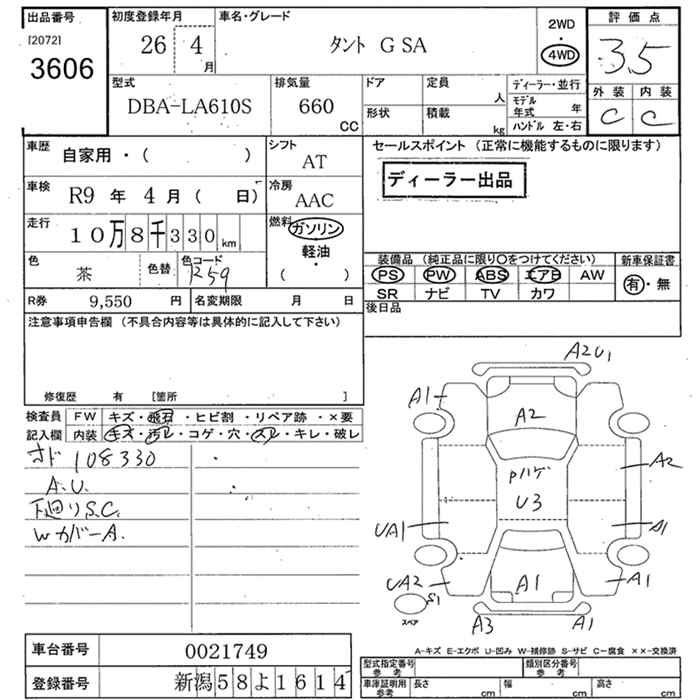 出品番号
[2072]
3606
初度登録年月
26 4 月
車名・グレード
タント G SA
2WD
4WD
評価点
3.5
外装 内装
C C
型式
DBA-LA610S
排気量
660
CC
ドア
形状
定員
人
積載
kg
ディーラー・並行
モデル年式 年
ハンドル 左・右
車歴
自家用・( )
シフト
AT
車検
R9 年 4 月 ( 日)
冷房
AAC
走行
10万8千330km
燃料
ガソリン・
軽油・
( )
色
茶
色替
色コード
R59
R券 9,550 円
名変期限 月 日
セールスポイント (正常に機能するものに限ります)
ディーラー出品
装備品 (純正品に限り○をつけてください)
PS PW ABS エアB AW
SR ナビ TV カワ
新車保証書
有・無
後日品
注意事項申告欄 (不具合内容等は具体的に記入して下さい)
修復歴 有 [箇所 ]
検査員記入欄
FW キズ・飛石・ヒビ割・リペア跡・×要
内装 キズ・汚レ・コゲ・穴・スレ・キレ・破レ
オド 108330
A.U.
下廻りS.C.
WカバーA.
A2U1
A1
A2
A2
Pハゲ
U3
UA1
S1
UA2
S1
A1
A1
スペア
A3
A1
A-キズ E-エクボ U-凹み W-補修跡 S-サビ C-腐食 ××-交換済
車台番号 0021749
登録番号 新潟58よ1614
型式指定番号
参考
類別区分番号
参考
車庫証明用
参考
長さ cm
幅 cm
高さ cm